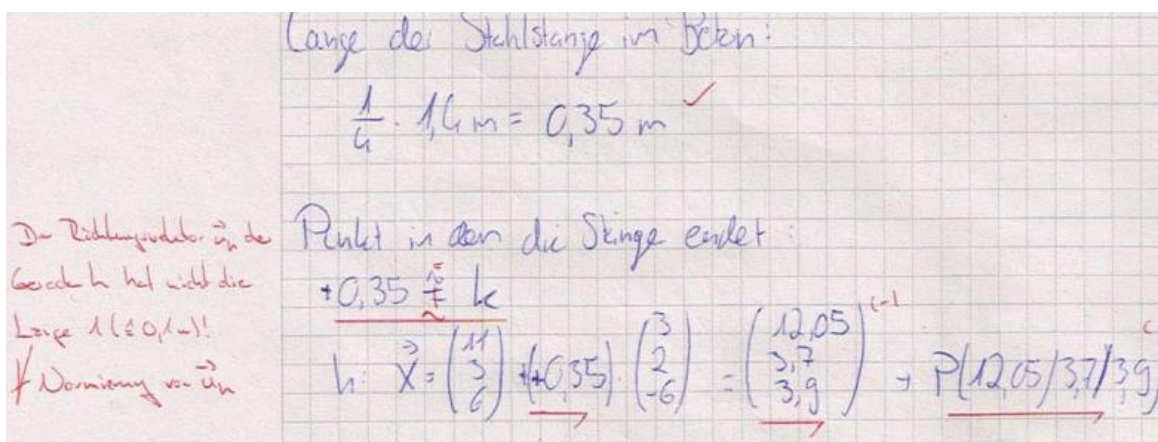 Länge der Stahlstange im Beton:
1/4 · 1,4 m = 0,35 m ✓
Der Richtungsvektor u⃗h der
Gerade h hat nicht die
Länge 1 (≙ 0,1m)!
Normierung von u⃗h
Punkt in dem die Stange endet:
+0,35 = k
h: X⃗ = (11 3 6) + (+0,35) · (3 2 -6) = (12,05 3,7 3,9) (-1 → P(12,05/3,7/3,9)